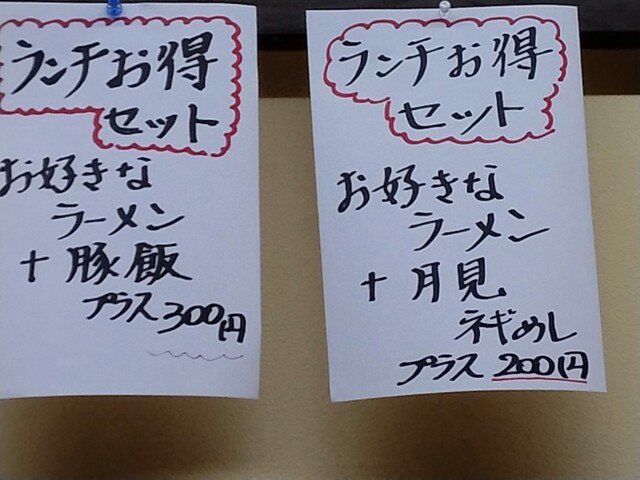 ランチお得
セット
お好きな
ラーメン
+豚飯
プラス300円
ランチお得
セット
お好きな
ラーメン
+月見
ネギめし
プラス200円